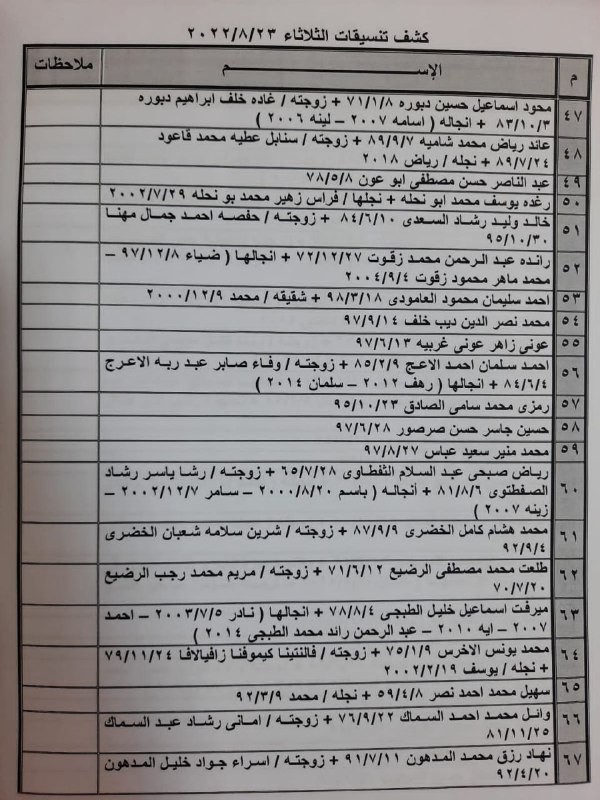 كشف تنسيقات الثلاثاء ٢٠٢٢/٨/٢٣
م الإســـم ملاحظات
٤٧ محود اسماعيل حسين دبوره ٧١/١/٨ + زوجته / غاده خلف ابراهيم دبوره
٨٣/١٠/٣ + انجاله ( اسامه ٢٠٠٧ – لينه ٢٠٠٦ )
٤٨ عائد رياض محمد شاميه ٨٩/٩/٧ + زوجته / سنابل عطيه محمد قاعود
٨٩/٧/٢٤ + نجله / رياض ٢٠١٨
٤٩ عبد الناصر حسن مصطفى ابو عون ٧٨/٥/٨
٥٠ رغده يوسف محمد ابو نحله + نجلها / فراس زهير محمد بو نحله ٢٠٠٢/٧/٢٩
٥١ خالد وليد رشاد السعدى ٨٤/٦/١٠ + زوجته / حفصه احمد جمال مهنا
٩٥/١٠/٣٠
٥٢ رانده عبد الرحمن محمد زقوت ٧٢/١٢/٢٧ + انجالها ( ضياء ٩٧/١٢/٨ –
محمد ماهر محمود زقوت ٢٠٠٤/٩/٤
٥٣ احمد سليمان محمود العامودى ٩٨/٣/١٨ + شقيقه / محمد ٢٠٠٠/١٢/٩
٥٤ محمد نصر الدين ديب خلف ٩٧/٩/١٤
٥٥ عونى زاهر عونى غربيه ٩٧/٦/١٣
٥٦ احمد سلمان احمد الاعج ٨٥/٢/٩ + زوجته / وفاء صابر عبد ربه الاعرج
٨٤/٦/٤ + انجالها ( رهف ٢٠١٢ – سلمان ٢٠١٤ )
٥٧ رمزى محمد سامى الصادق ٩٥/١٠/٢٣
٥٨ حسين جاسر حسن صرصور ٩٧/٦/٢٨
٥٩ محمد منير سعيد عباس ٩٧/٨/٢٧
٦٠ رياض صبحى عبد السلام الثفطاوى ٦٥/٧/٢٨ + زوجته / رشا ياسر رشاد
الصفطتوى ٨١/٨/٦ + أنجاله ( باسم ٢٠٠٠/٨/٢٠ – سامر ٢٠٠٢/١٢/٧ –
زينه ٢٠٠٧ )
٦١ محمد هشام كامل الخضرى ٨٧/٩/٩ + زوجته / شرين سلامه شعبان الخضرى
٩٢/٩/٤
٦٢ طلعت محمد مصطفى الرضيع ٧١/٦/١٢ + زوجته / مريم محمد رجب الرضيع
٧٠/٧/٢٠
٦٣ ميرفت اسماعيل خليل الطبجى ٧٨/٨/٤ + انجالها ( نادر ٢٠٠٣/٧/٥ – احمد
٢٠٠٧ – ايه ٢٠١٠ – عبد الرحمن رائد محمد الطبجى ٢٠١٤ )
٦٤ محمد يونس الاخرس ٧٥/١/٩ + زوجته / فالنتينا كيموفنا زافيالافا ٧٩/١١/٢٤
+ نجله / يوسف ٢٠٠٢/٢/١٩
٦٥ سهيل محمد احمد نصر ٥٩/٤/٨ + نجله / محمد ٩٢/٣/٩
٦٦ وائل محمد احمد السماك ٧٦/٩/٢٢ + زوجته / امانى رشاد عبد السماك
٨١/١١/٢٥
٦٧ نهاد رزق محمد المدهون ٩١/٧/١١ + زوجته / اسراء جواد خليل المدهون
٩٢/٤/٢٠